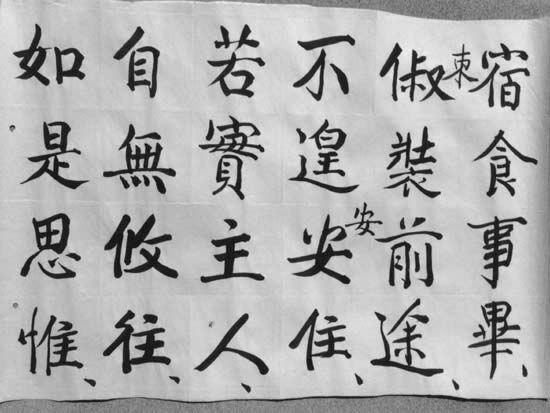 宿食事畢、
束
俶裝前途、
安
不遑安住、
若實主人、
自無攸往、
如是思惟、